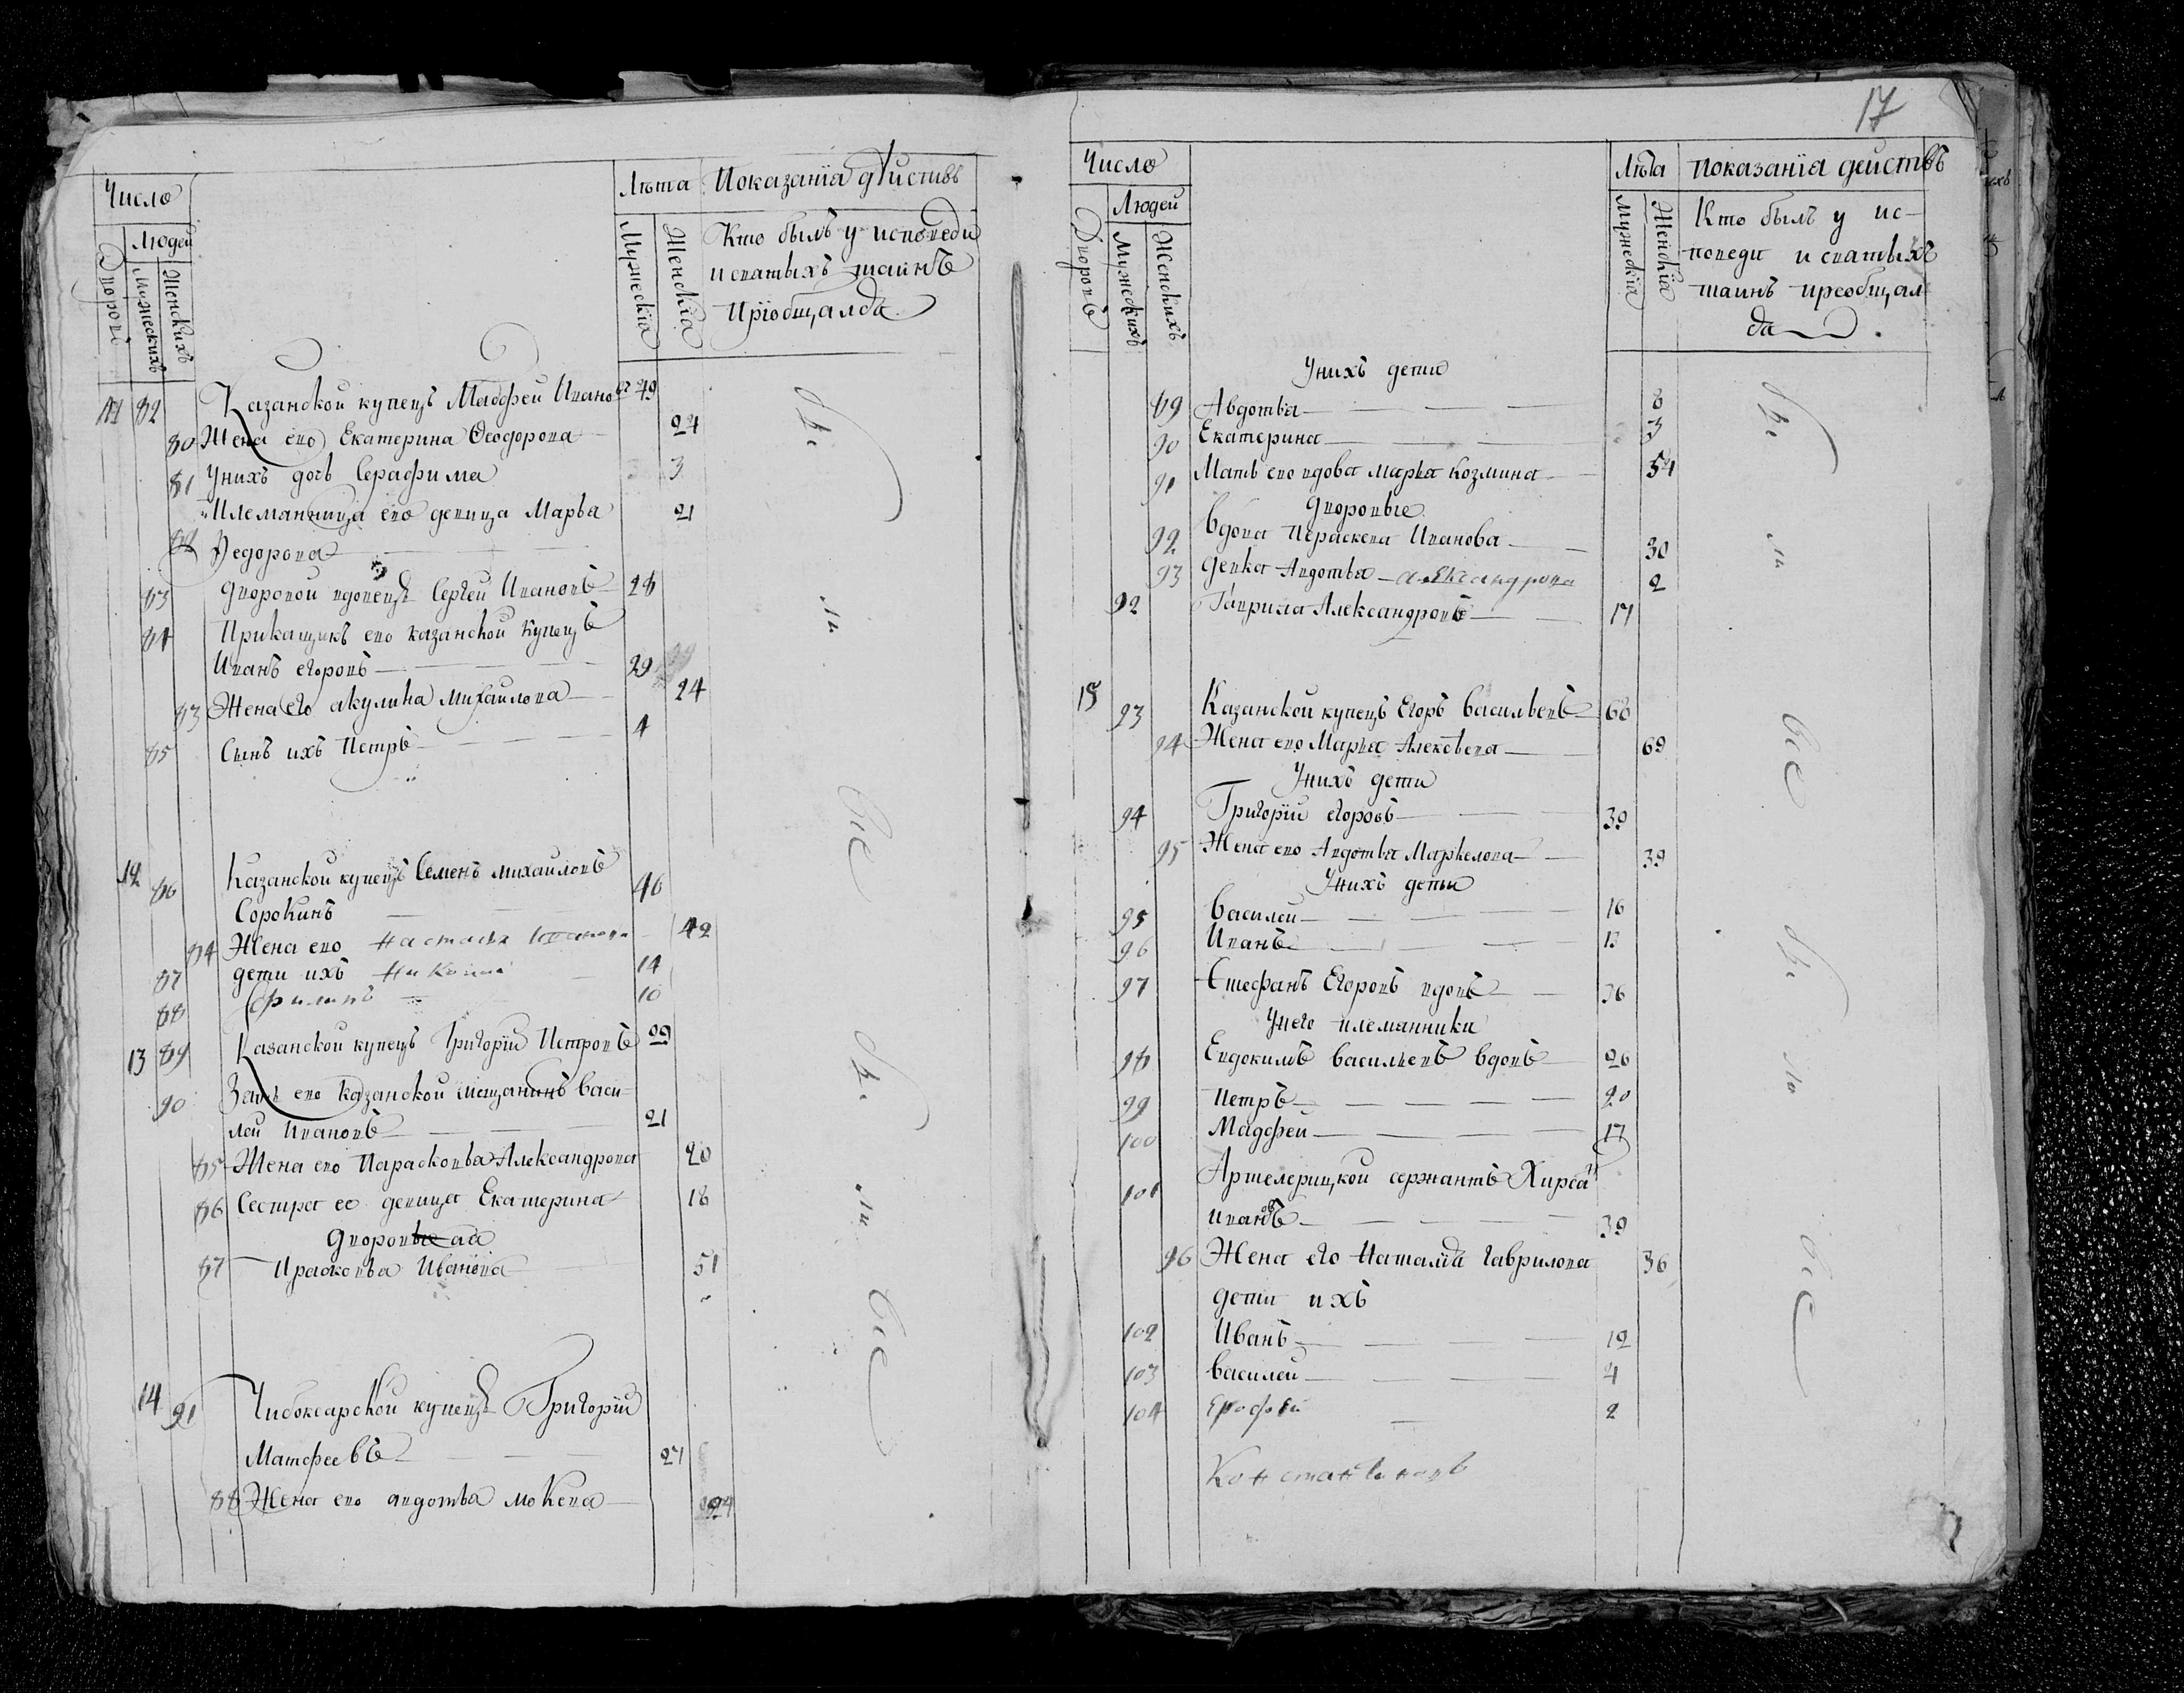 Число
Лѣта Показанїя дѣйствъ
Людей
Дворовъ
Мужескихъ
Женскихъ
Мужескїя
Женскїя
Кто былъ у исповеди
и святыхъ таинъ
прїобщался
11 82 Казанской купецъ Маѳфей Иванов 49
80 Жена его Екатерина Ѳеодорова 24
81 Унихъ дочь Серафима 3
Племянница его девица Марья 21
82 Федорова
83 дворовой вдовецъ Сергей Ивановъ 28
84 Прикащикъ его казанской купецъ
Иванъ егоровъ 29
83 Жена его акулина михаилова 24
85 Сынъ ихъ Петръ 4
12 86 Казанской купецъ Семенъ михаиловъ 46
Сорокинъ
84 Жена его Настасья 42
87 дети ихъ 14
88 Филипъ 10
13 89 Казанской купецъ Григорїй Петровъ 29
90 Зять его казанской мещанинъ Васи-
лей Ивановъ 21
85 Жена его Парасковья Александрова 20
86 Сестра ее девица Екатерина 18
дворовыеая
87 Прасковья Иванова 51
14 91 Чибоксарской купецъ Григорїй
Матфеевъ 27
88 Жена его авдотья мокева 24
17
Число
Лѣта показанїя действъ
Людей
Дворовъ
Мужескихъ
Женскихъ
Мужескїя
Женскїя
Кто былъ у ис-
поведи и святыхъ
таинъ преобщал
ся
Унихъ дети
89 Авдотья 8
90 Екатерина 3
91 Мать его вдова марья козмина 54
дворовые
92 Вдова Параскева Иванова 30
93 девка Авдотья александрова 2
92 Гаврила Александровъ 17
15 93 Казанской купецъ Егоръ Васильевъ 68
94 Жена его Марья Алексѣева 69
Унихъ дети
94 Григорїй егоровъ 39
95 Жена его Авдотья Маркелова 39
Унихъ дети
95 Василей 16
96 Иванъ 13
97 Стефанъ Егоровъ вдовъ 36
Унего племянники
98 Евдокимъ васильевъ вдовъ 26
99 Петръ 20
100 Маѳфей 17
101 Артелерицкой сержантъ Хирса
ивановъ 39
96 Жена его Наталїя гаврилова 36
дети ихъ
102 Иванъ 12
103 василей 4
104 Ерофѣй 2
Константиновъ